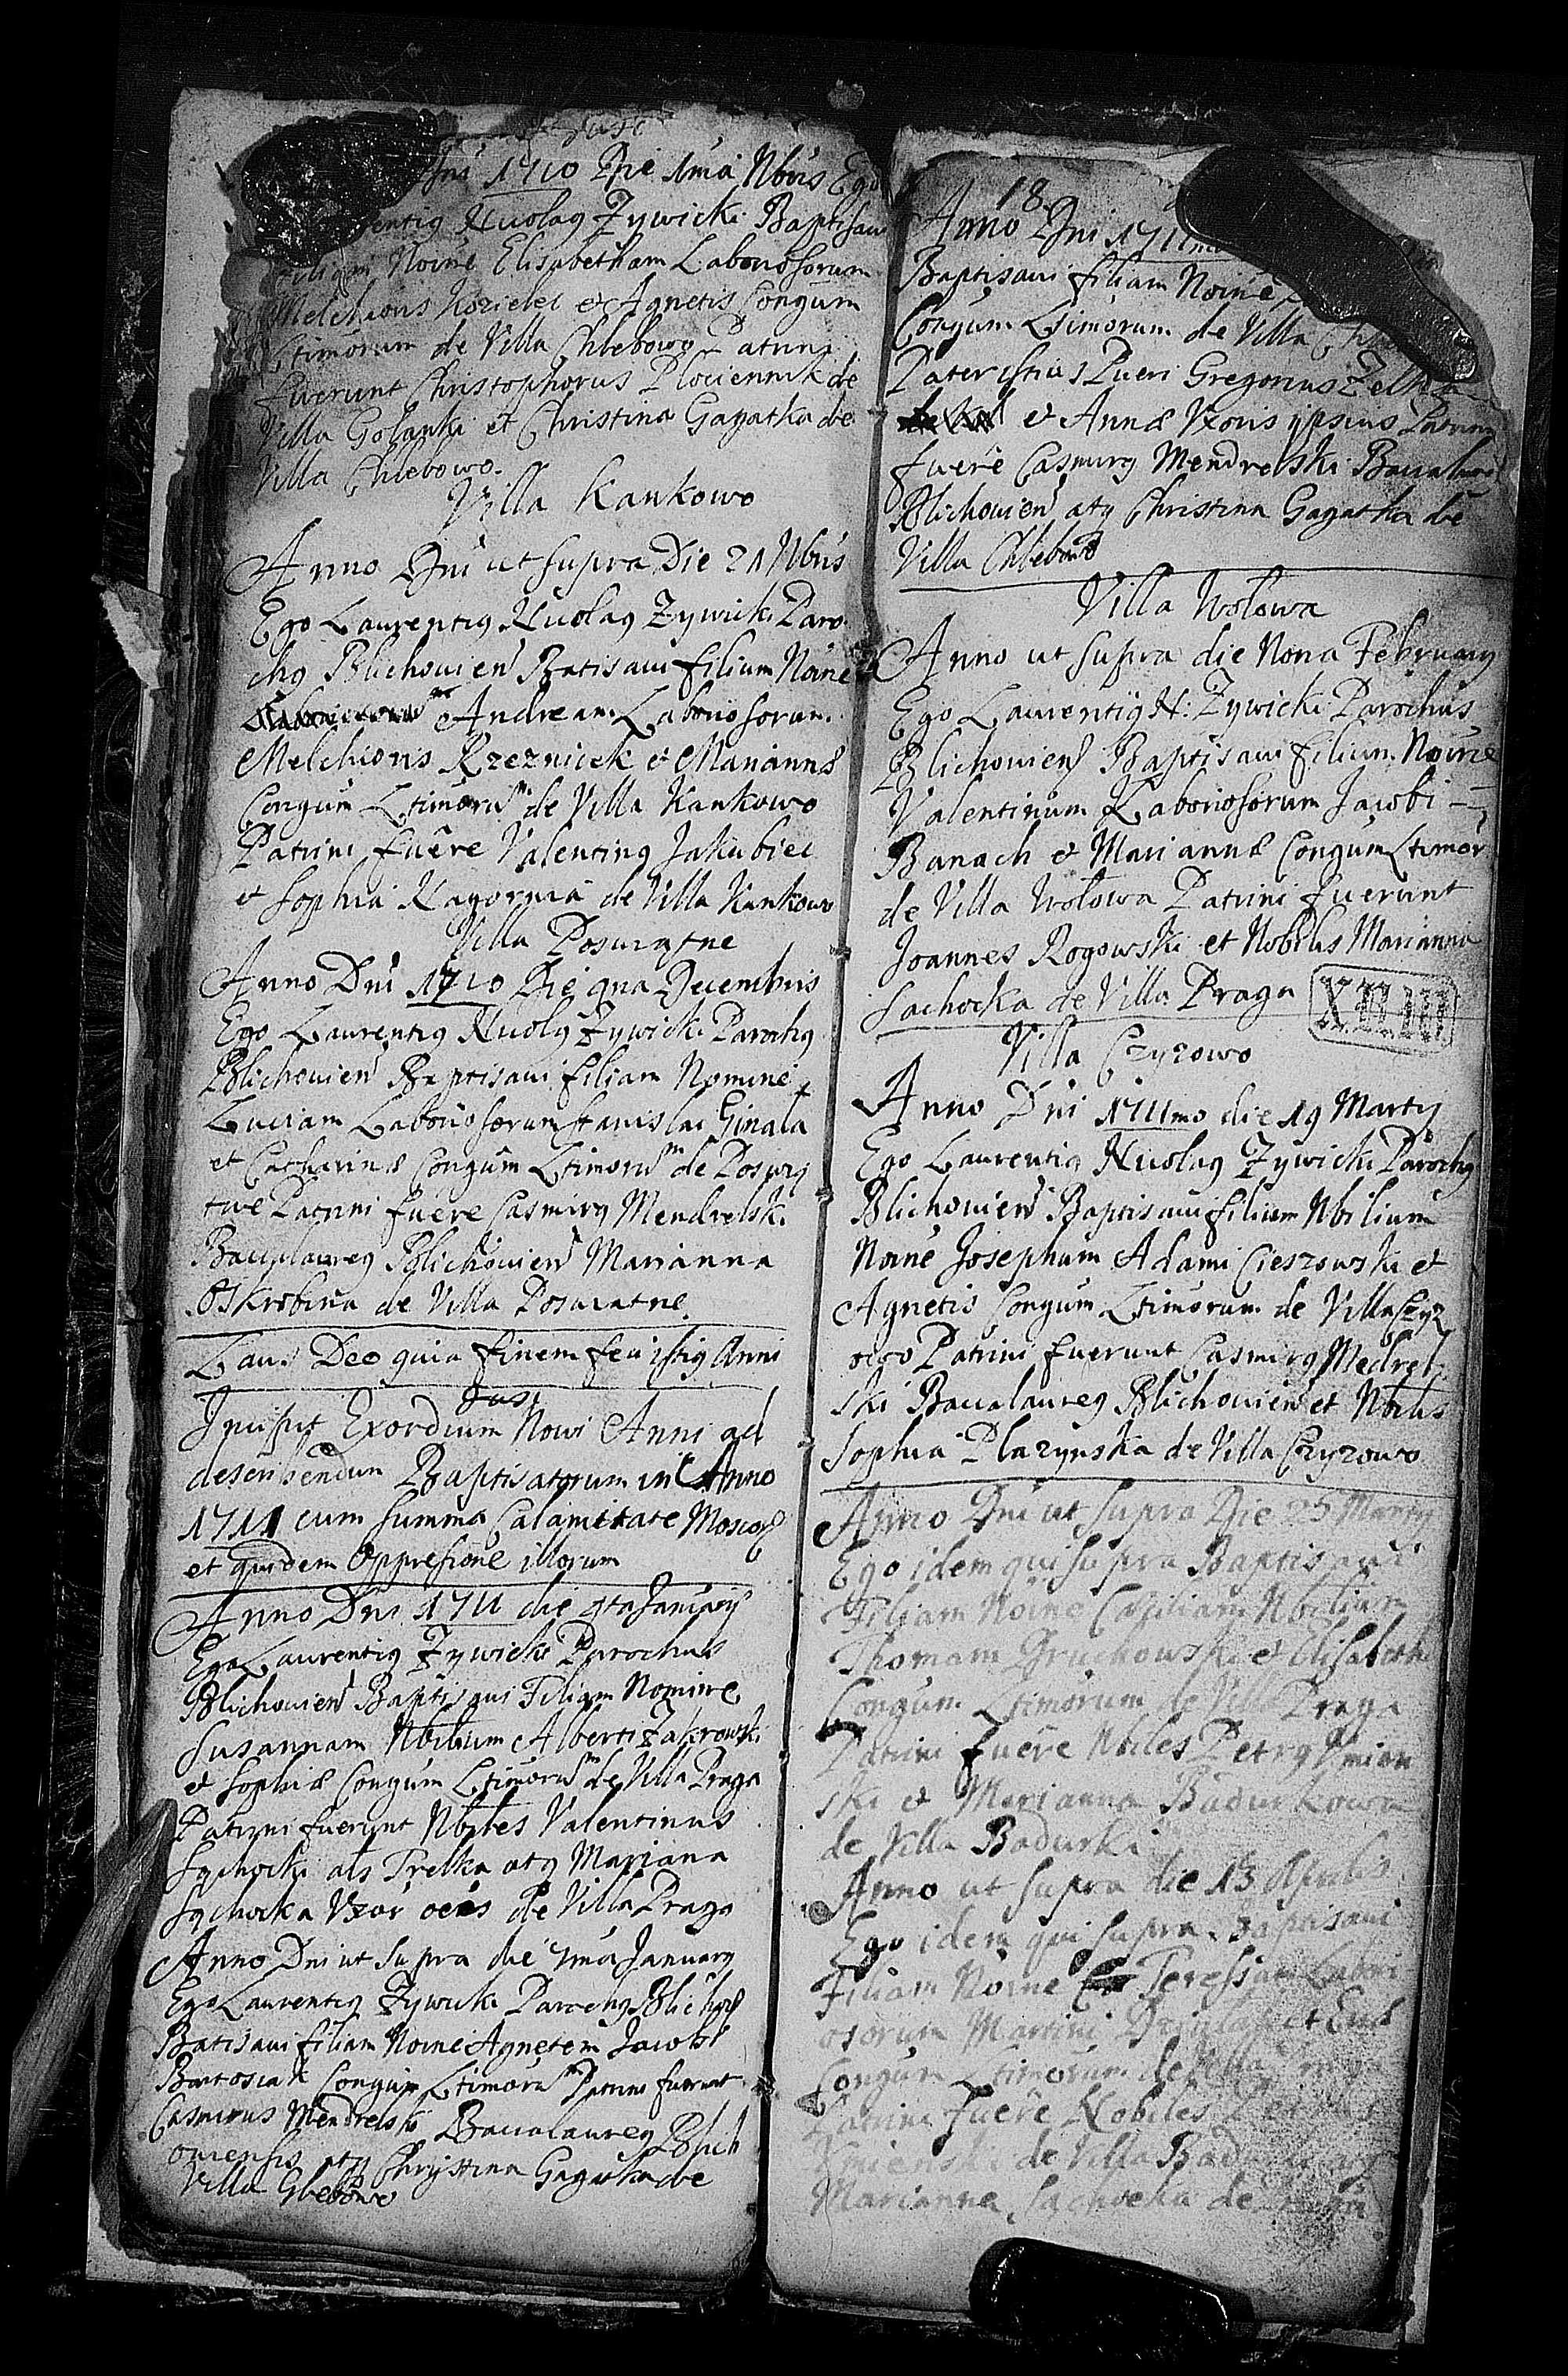 Dni 1710 Die 1ma Nbris Ego
Nicolaq Zywicki Baptisavi
filiam Noine Elisabetham Laboriosorum
Melchioris Koziebel et Agnetis Congum
Ltimorum de Villa Chlebowo Patrini
fuerunt Christophorus Plociennik de
Villa Golanki et Christina Gagatka de
Villa Chlebowo.
Villa Kankowo
Anno Dni ut supra Die 21 Nbris
Ego Laurentiq Nicolaq Zywicki Paro
chq Blichovien Batisavi filium Noine
Andream Laboriosorum
Melchioris Rzezniek et Mariannæ
Congum Ltimoru de Villa Kankowo
Patrini fuere Valentinq Jakubiec
et Sophia Kagorna de Villa Kankowo
Villa Posuratne
Anno Dni 1710 Die qua Decembris
Ego Laurentiq Nicolq Zywicki Parochq
Blichovien Baptisavi filiam Nomine
Luciam Laboriosorum Stanislai Ginala
et Catharinæ Congum Ltimoru de Posurj
tne Patrini fuere Casmirq Mendrelski
Baccalaureq Blichovien Marianna
Oskrobina de Villa Posuratne
Laus Deo quia finem feci istiq Anni
Jncipit Exordium Novi Anni ad
describendum Baptisatorum in Anno
1711 cum summa Calamitate Moscor
et quidem Oppresione illorum
Anno Dni 1711 die 4ta Januarij
Ego Laurentiq Zywicki Parochus
Blichovien Baptisavi Filiam Nomine
Susannam Nbilium Alberti Zakrowski
et Sophiæ Congum Ltimoru de Villa Praga
Patrini fuerunt Nbiles Valentinus
Sychocki als Trelka atq Mariana
Sychocka Vxor de Villa Praga
Anno Dni ut supra die 7ma January
Ego Laurentiq Zywicki Parochq Blichov
Batisavi filiam Noine Agnetem Jacobi
Bartosiak Congum Ltimoru Patrini fuerunt
Casmirus Mendrelski Baccalaureq Blich
oviensis atq Chrystina Gagatka de
Villa Glebowo
18
Anno Dni 1711
Baptisavi filiam Noine
Congum Ltimorum de Villa
Pater istius Pueri Gregorius
et Annæ Vxoris ipsius Patrini
fuere Casmirq Mendrelski Baccalaure
Blichovien atq Christina Gagatka de
Villa Chlebowo
Villa Wolowa
Anno ut supra die Nona February
Ego Laurentiq N: Zywicki Parochus
Blichovien Baptisavi filium Noine
Valentinum Laboriosorum Jacobi
Banach et Mariannæ Congum Ltimor
de Villa Wolowa Patrini fuerunt
Joannes Rogowski et Nobilis Marianna
Sachocka de Villa Praga
Villa Czyzowo
Anno Dni 1711mo die 19 Martij
Ego Laurentiq Nicolaq Zywicki Parochq
Blichovien Baptisavi filium Nbilium
Noine Josephum Adami Cieszowski et
Agnetis Congum Ltimorum de Villa Czyz
owo Patrini fuerunt Casmirq Medrel
ski Baccalaureq Blichovien et Nbilis
Sophia Plazynska de Villa Czyzowo
Anno Dni ut supra Die 25 Martij
Ego idem qui supra Baptisavi
Filiam Noine Caeciliam Nbilium
Thomam Gruckowski et Elisabeth
Congum Ltimorum de Villa Praga
Patrini fuere Nbiles Petrq Kmien
ski et Marianna Badurkowa
de Villa Badurki
Anno ut supra die 13 Aprilis
Ego idem qui supra Baptisavi
Filiam Noine Teressiam Labori
osorum Martini et
Congum Ltimorum de Villa
Patrini fuere Nobiles
Kmienski de Villa
Marianna Sachocka de